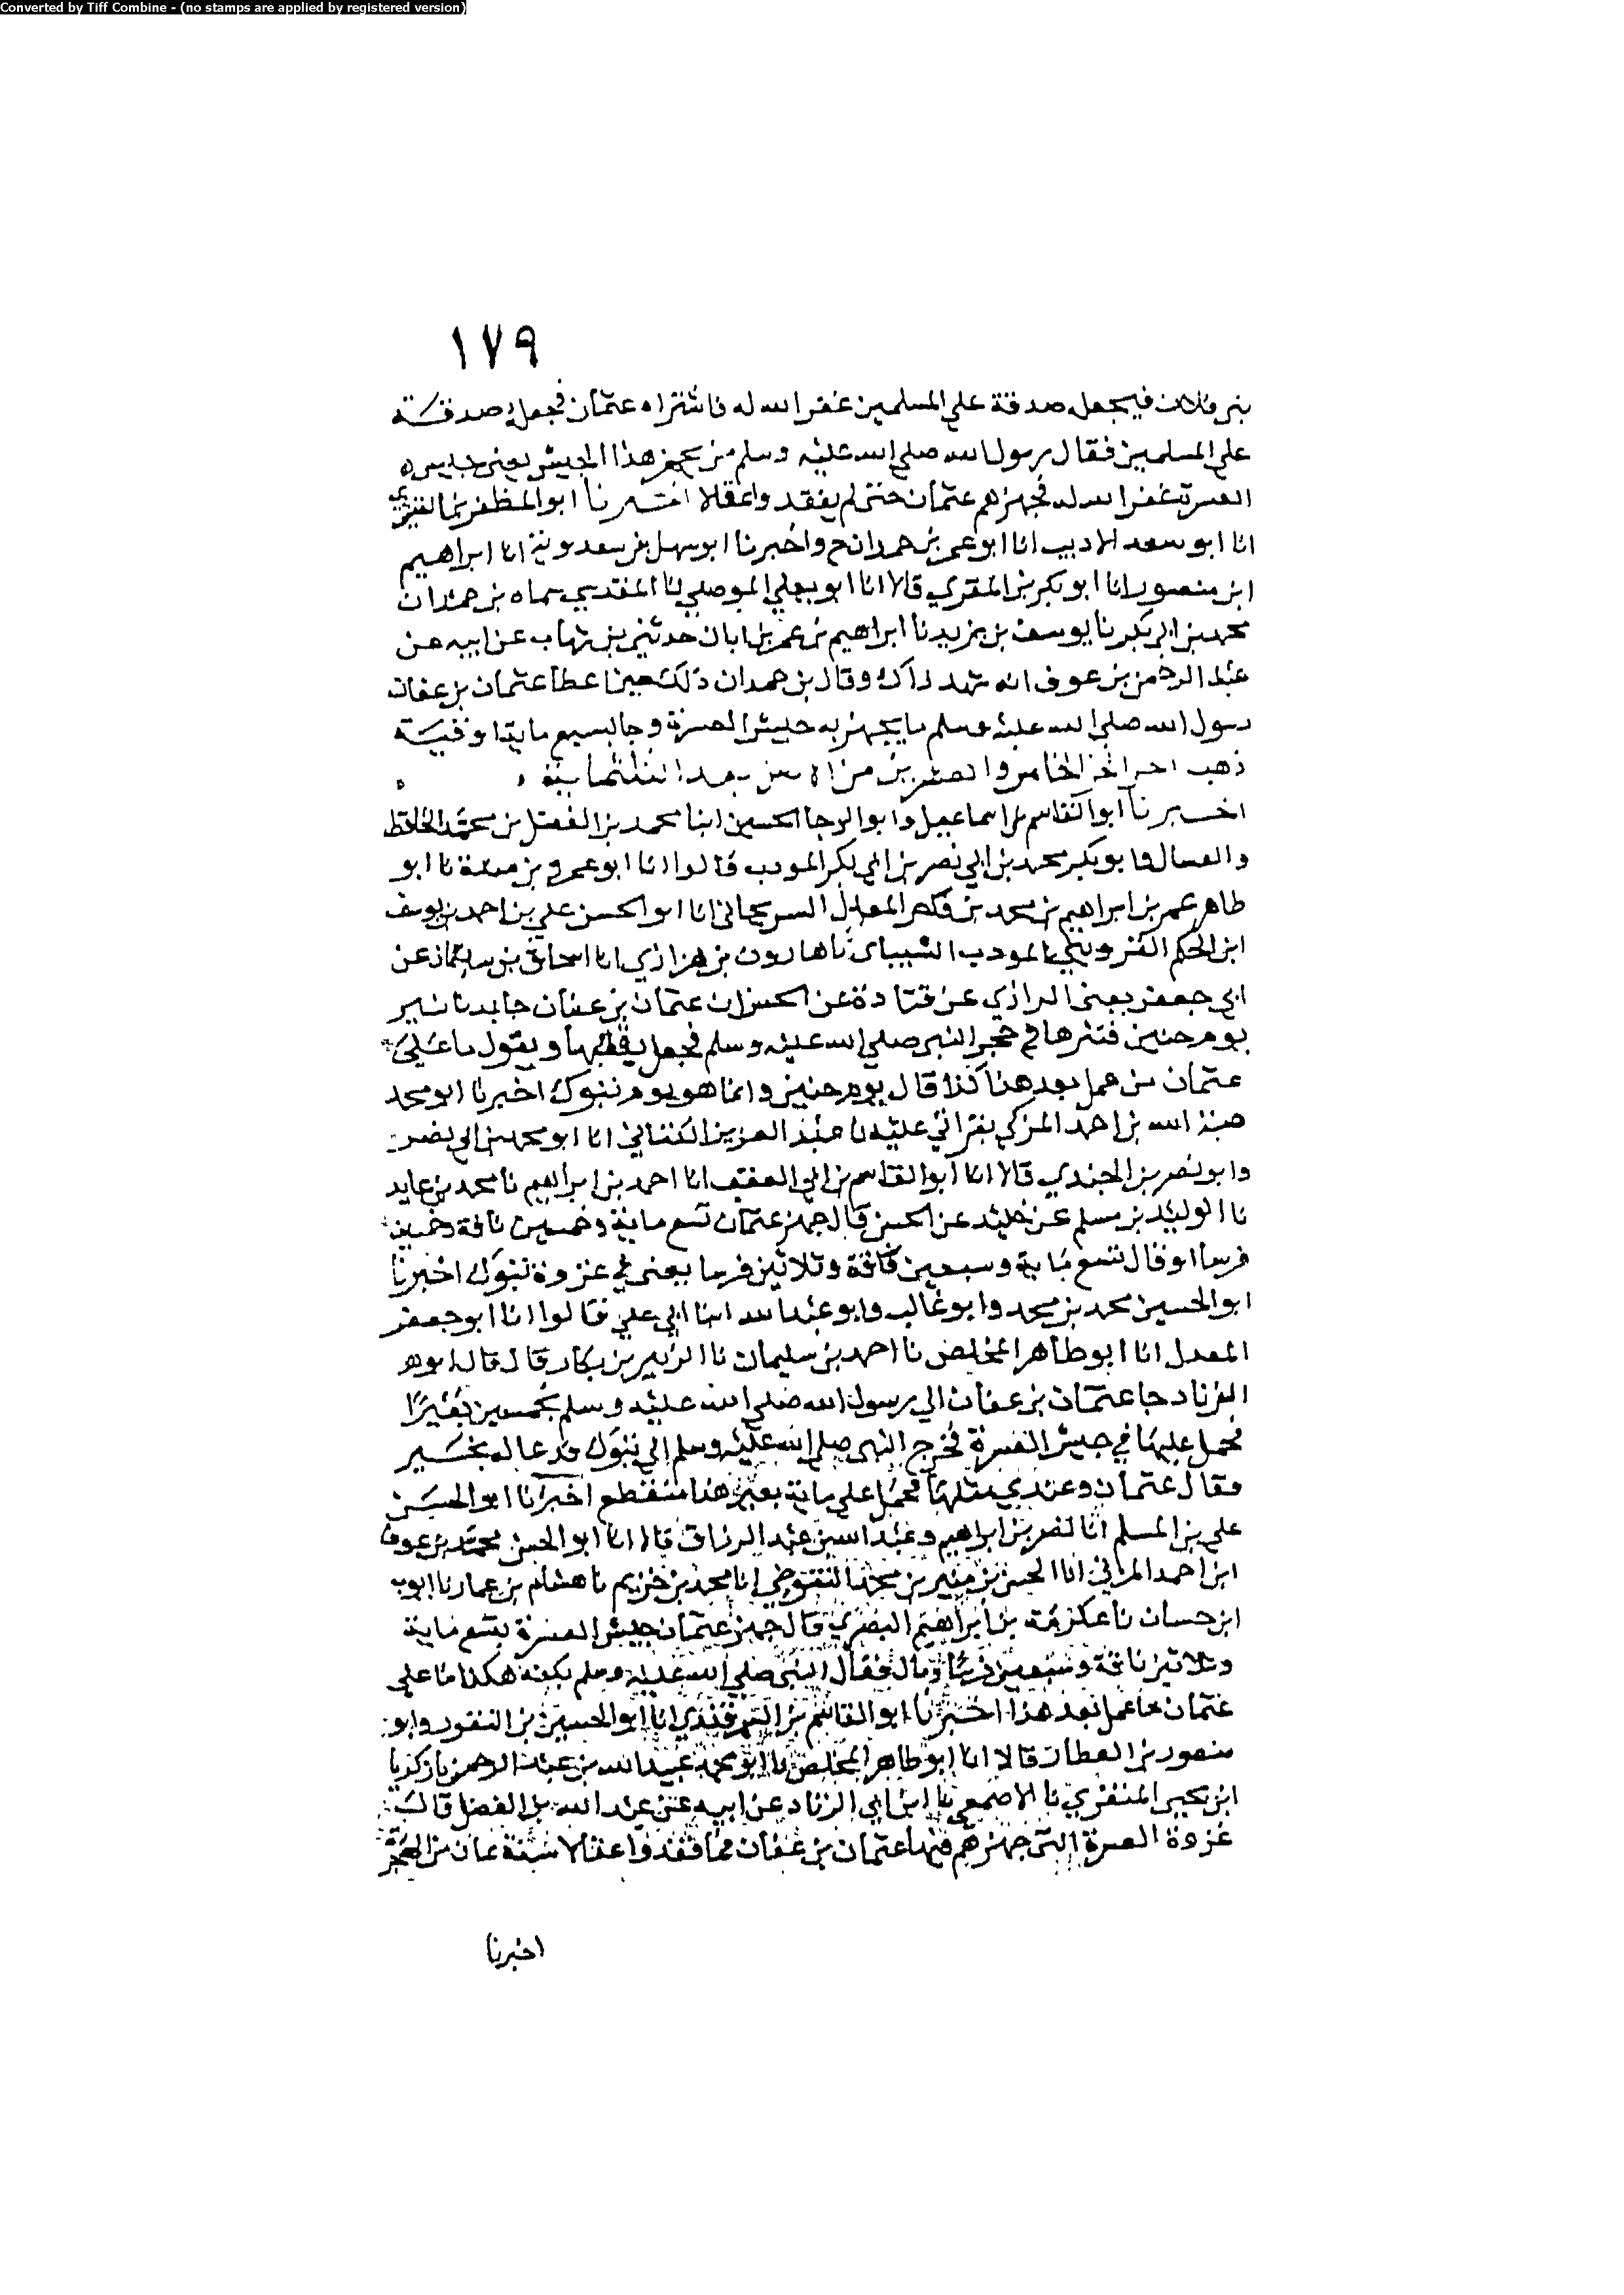 Converted by Tiff Combine - (no stamps are applied by registered version)
١٧٩
بئر فلان فيجعله صدقة على المسلمين غفر الله له فاشتراه عثمان فجعله صدقة
على المسلمين فقال رسول الله صلى الله عليه وسلم من يجهز هذا الجيش يعنى جيش
العسرة غفر الله له فجهزهم عثمان حتى لم يفقدوا عقلا اخبرنا ابو المظفر بن القشيري
انا ابو سعد الاديب انا ابو عمر بن حمدان ح واخبرنا ابو سهل بن سعدويه انا ابراهيم
ابن منصور انا ابو بكر بن المقري قالا انا ابو يعلي الموصلي نا المقدمي سماه بن حمدان
محمد بن ابي بكر نا يوسف بن يزيد نا ابراهيم بن عمر بن ابان حدثني بن شهاب عن ابيه عن
عبد الرحمن بن عوف انه شهد ذاك وقال بن حمدان ذلك حين اعطا عثمان بن عفان
رسول الله صلى الله عليه وسلم ما يجهز به جيش العسرة وجا بسبع ماية اوقية
ذهب اخر الجز الخامس و بعد الثلثماية
اخبرنا ابو القاسم بن اسماعيل وابو الرجا الحسين ابنا محمد بن الفضل بن محمد الحافظ
وابو بكر محمد بن ابي نصر بن ابي بكر المودب قالوا انا ابو عمرو بن مندة نا ابو
طاهر عمر بن ابراهيم بن محمد بن المعدل السريجاني انا ابو الحسن علي بن احمد بن يوسف
ابن الحكم القزويني المودب الشيباني نا هارون بن هزاري انا اسحاق بن سليمان عن
ابي جعفر يعنى الرازي عن قتادة عن الحسن ان عثمان بن عفان جا بدنانير
يوم حنين فنثرها في حجر النبي صلى الله عليه وسلم فجعل يقلبها ويقول ما علي
عثمان من عمل بعد هذا كذا قال يوم حنين وانما هو يوم تبوك اخبرنا ابو محمد
هبة الله بن احمد المزكي بقراتي عليه نا عبد العزيز الكتاني انا ابو محمد بن ابي نصر
وابو نصر بن الجندي قالا انا ابو القاسم بن ابي العقب انا احمد بن ابراهيم نا محمد بن عايد
نا الوليد بن مسلم عن خليد عن الحسن قال جهز عثمان تسع ماية وخمسين ناقة وخمسين
فرسا او قال تسع ماية وسبعين ناقة وثلاثين فرسا يعنى في غزوة تبوك اخبرنا
ابو الحسين محمد بن محمد وابو غالب وابو عبد الله ابنا ابي علي قالوا انا ابو جعفر
المعدل انا ابو طاهر المخلص نا احمد بن سليمان نا الزبير بن بكار قال قال ابو هو
الزناد جا عثمان بن عفان الي رسول الله صلى الله عليه وسلم بخمسين بعيرا
فحمل عليها في جيش العسرة فخرج النبي صلى الله عليه وسلم الي تبوك فدعا له بخير
وقال عثمان وعندي مثلها فحمل على ماية بعير هذا منقطع اخبرنا ابو الحسن
علي بن المسلم انا نصر بن ابراهيم وعبد الله بن عبد الرزاق قالا انا ابو الحسن محمد بن عوف
ابن احمد المزني انا الحسن بن منير بن محمد التنوخي انا محمد بن خزيم نا هشام بن عمار نا ايوب
ابن حسان نا عكرمة بن ابراهيم البصري قال جهز عثمان جيش العسرة بتسع ماية
وثلاثين ناقة وسبعين فرسا ومال فقال النبي صلى الله عليه وسلم بكفه هكذا ما علي
عثمان ما عمل بعد هذا اخبرنا ابو القاسم بن السمرقندي انا ابو الحسين بن النقور وابو
منصور بن العطار قالا انا ابو طاهر المخلص نا ابو محمد عبيد الله بن عبد الرحمن نا زكريا
ابن يحيى المنقري نا الاصمعي نا ابن ابي الزناد عن ابيه عن عبد الله بن الفضل قال
غزوة العسرة التي جهزهم فيها عثمان بن عفان فما فقدوا عقالا سنة ثمان من الهجرة
اخبرنا